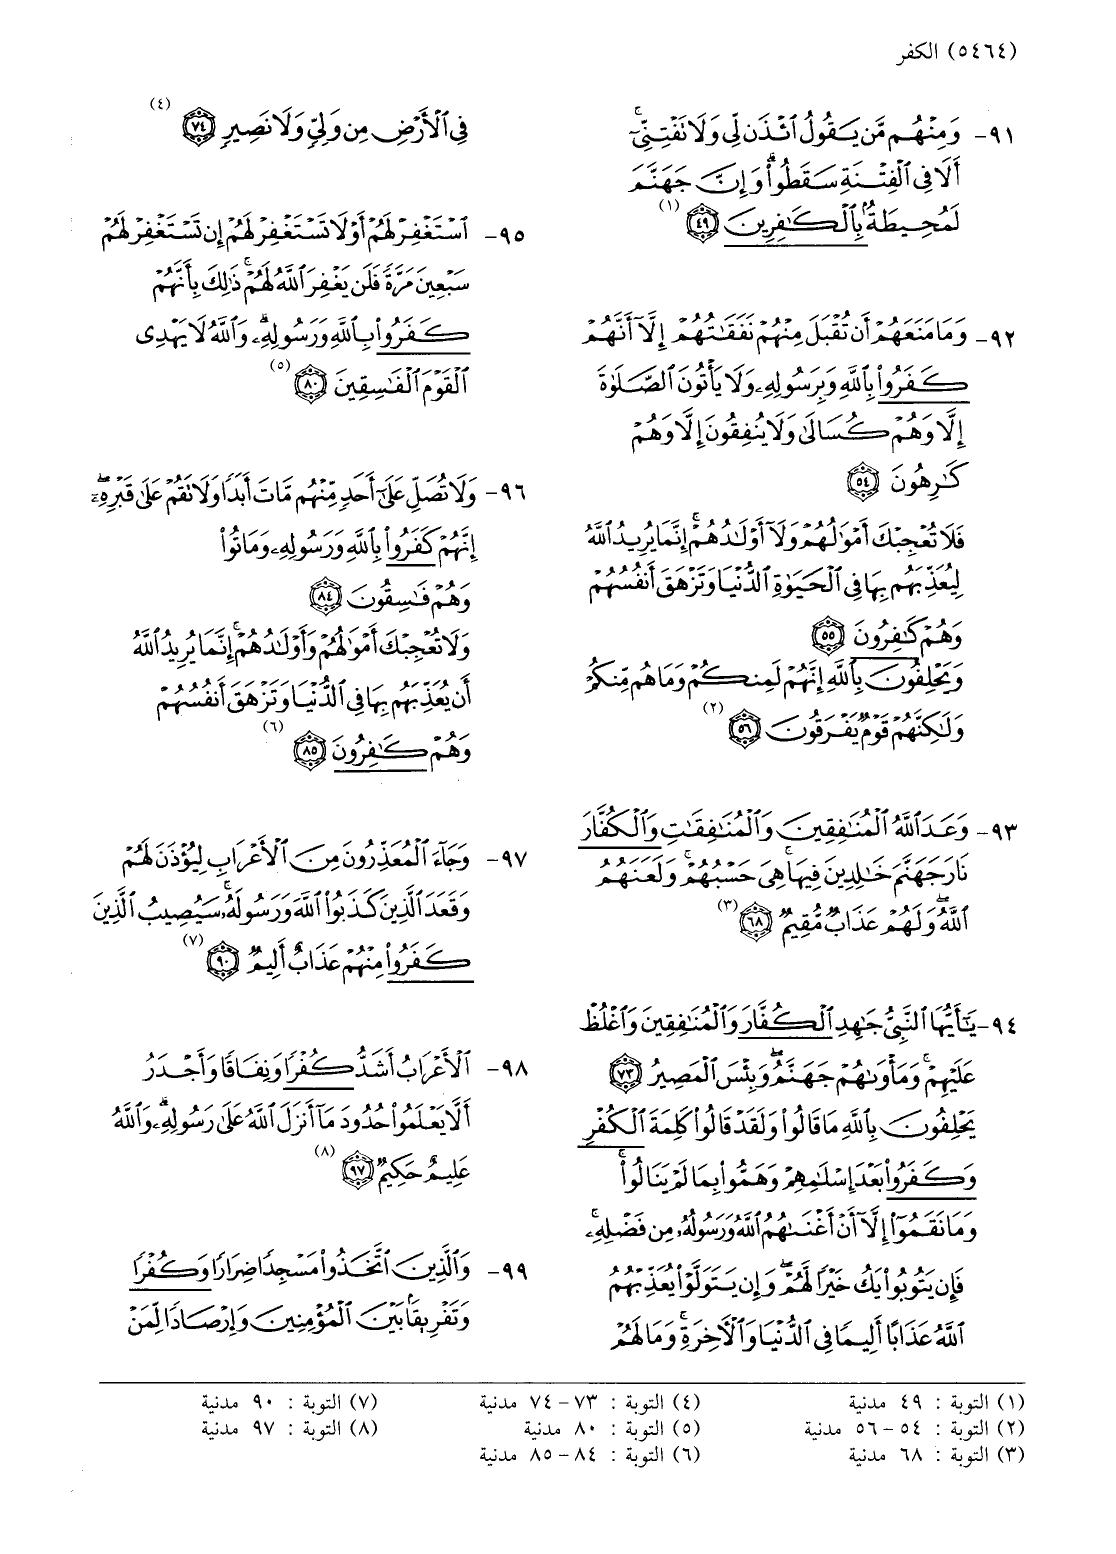 (٥٤٦٤) الكفر
٩١- وَمِنْهُم مَّن يَقُولُ ٱئْذَن لِّى وَلَا نَفْتِنِّىٓ ۚ
أَلَا فِى ٱلْفِتْنَةِ سَقَطُوا۟ ۗ وَإِنَّ جَهَنَّمَ
لَمُحِيطَةٌۢ بِٱلْكَـٰفِرِينَ ﴿٤٩﴾ (١)
٩٢- وَمَا مَنَعَهُمْ أَن تُقْبَلَ مِنْهُمْ نَفَقَـٰتُهُمْ إِلَّآ أَنَّهُمْ
كَفَرُوا۟ بِٱللَّهِ وَبِرَسُولِهِۦ وَلَا يَأْتُونَ ٱلصَّلَوٰةَ
إِلَّا وَهُمْ كُسَالَىٰ وَلَا يُنفِقُونَ إِلَّا وَهُمْ
كَـٰرِهُونَ ﴿٥٤﴾
فَلَا تُعْجِبْكَ أَمْوَٰلُهُمْ وَلَآ أَوْلَـٰدُهُمْ ۚ إِنَّمَا يُرِيدُ ٱللَّهُ
لِيُعَذِّبَهُم بِهَا فِى ٱلْحَيَوٰةِ ٱلدُّنْيَا وَتَزْهَقَ أَنفُسُهُمْ
وَهُمْ كَـٰفِرُونَ ﴿٥٥﴾
وَيَحْلِفُونَ بِٱللَّهِ إِنَّهُمْ لَمِنكُمْ وَمَا هُم مِّنكُمْ
وَلَـٰكِنَّهُمْ قَوْمٌ يَفْرَقُونَ ﴿٥٦﴾ (٢)
٩٣- وَعَدَ ٱللَّهُ ٱلْمُنَـٰفِقِينَ وَٱلْمُنَـٰفِقَـٰتِ وَٱلْكُفَّارَ
نَارَ جَهَنَّمَ خَـٰلِدِينَ فِيهَا ۚ هِىَ حَسْبُهُمْ ۚ وَلَعَنَهُمُ
ٱللَّهُ ۖ وَلَهُمْ عَذَابٌ مُّقِيمٌ ﴿٦٨﴾ (٣)
٩٤- يَـٰٓأَيُّهَا ٱلنَّبِىُّ جَـٰهِدِ ٱلْكُفَّارَ وَٱلْمُنَـٰفِقِينَ وَٱغْلُظْ
عَلَيْهِمْ ۚ وَمَأْوَىٰهُمْ جَهَنَّمُ ۖ وَبِئْسَ ٱلْمَصِيرُ ﴿٧٣﴾
يَحْلِفُونَ بِٱللَّهِ مَا قَالُوا۟ وَلَقَدْ قَالُوا۟ كَلِمَةَ ٱلْكُفْرِ
وَكَفَرُوا۟ بَعْدَ إِسْلَـٰمِهِمْ وَهَمُّوا۟ بِمَا لَمْ يَنَالُوا۟ ۚ
وَمَا نَقَمُوٓا۟ إِلَّآ أَنْ أَغْنَىٰهُمُ ٱللَّهُ وَرَسُولُهُۥ مِن فَضْلِهِۦ ۚ
فَإِن يَتُوبُوا۟ يَكُ خَيْرًا لَّهُمْ ۖ وَإِن يَتَوَلَّوْا۟ يُعَذِّبْهُمُ
ٱللَّهُ عَذَابًا أَلِيمًا فِى ٱلدُّنْيَا وَٱلْـَٔاخِرَةِ ۚ وَمَا لَهُمْ
فِى ٱلْأَرْضِ مِن وَلِىٍّ وَلَا نَصِيرٍ ﴿٧٤﴾ (٤)
٩٥- ٱسْتَغْفِرْ لَهُمْ أَوْ لَا تَسْتَغْفِرْ لَهُمْ إِن تَسْتَغْفِرْ لَهُمْ
سَبْعِينَ مَرَّةً فَلَن يَغْفِرَ ٱللَّهُ لَهُمْ ۚ ذَٰلِكَ بِأَنَّهُمْ
كَفَرُوا۟ بِٱللَّهِ وَرَسُولِهِۦ ۗ وَٱللَّهُ لَا يَهْدِى
ٱلْقَوْمَ ٱلْفَـٰسِقِينَ ﴿٨٠﴾ (٥)
٩٦- وَلَا تُصَلِّ عَلَىٰٓ أَحَدٍ مِّنْهُم مَّاتَ أَبَدًا وَلَا تَقُمْ عَلَىٰ قَبْرِهِۦٓ ۖ
إِنَّهُمْ كَفَرُوا۟ بِٱللَّهِ وَرَسُولِهِۦ وَمَاتُوا۟
وَهُمْ فَـٰسِقُونَ ﴿٨٤﴾
وَلَا تُعْجِبْكَ أَمْوَٰلُهُمْ وَأَوْلَـٰدُهُمْ ۚ إِنَّمَا يُرِيدُ ٱللَّهُ
أَن يُعَذِّبَهُم بِهَا فِى ٱلدُّنْيَا وَتَزْهَقَ أَنفُسُهُمْ
وَهُمْ كَـٰفِرُونَ ﴿٨٥﴾ (٦)
٩٧- وَجَآءَ ٱلْمُعَذِّرُونَ مِنَ ٱلْأَعْرَابِ لِيُؤْذَنَ لَهُمْ
وَقَعَدَ ٱلَّذِينَ كَذَبُوا۟ ٱللَّهَ وَرَسُولَهُۥ ۚ سَيُصِيبُ ٱلَّذِينَ
كَفَرُوا۟ مِنْهُمْ عَذَابٌ أَلِيمٌ ﴿٩٠﴾ (٧)
٩٨- ٱلْأَعْرَابُ أَشَدُّ كُفْرًا وَنِفَاقًا وَأَجْدَرُ
أَلَّا يَعْلَمُوا۟ حُدُودَ مَآ أَنزَلَ ٱللَّهُ عَلَىٰ رَسُولِهِۦ ۗ وَٱللَّهُ
عَلِيمٌ حَكِيمٌ ﴿٩٧﴾ (٨)
٩٩- وَٱلَّذِينَ ٱتَّخَذُوا۟ مَسْجِدًا ضِرَارًا وَكُفْرًا
وَتَفْرِيقًۢا بَيْنَ ٱلْمُؤْمِنِينَ وَإِرْصَادًا لِّمَنْ
(١) التوبة : ٤٩ مدنية
(٢) التوبة : ٥٤ - ٥٦ مدنية
(٣) التوبة : ٦٨ مدنية
(٤) التوبة : ٧٣ - ٧٤ مدنية
(٥) التوبة : ٨٠ مدنية
(٦) التوبة : ٨٤ - ٨٥ مدنية
(٧) التوبة : ٩٠ مدنية
(٨) التوبة : ٩٧ مدنية